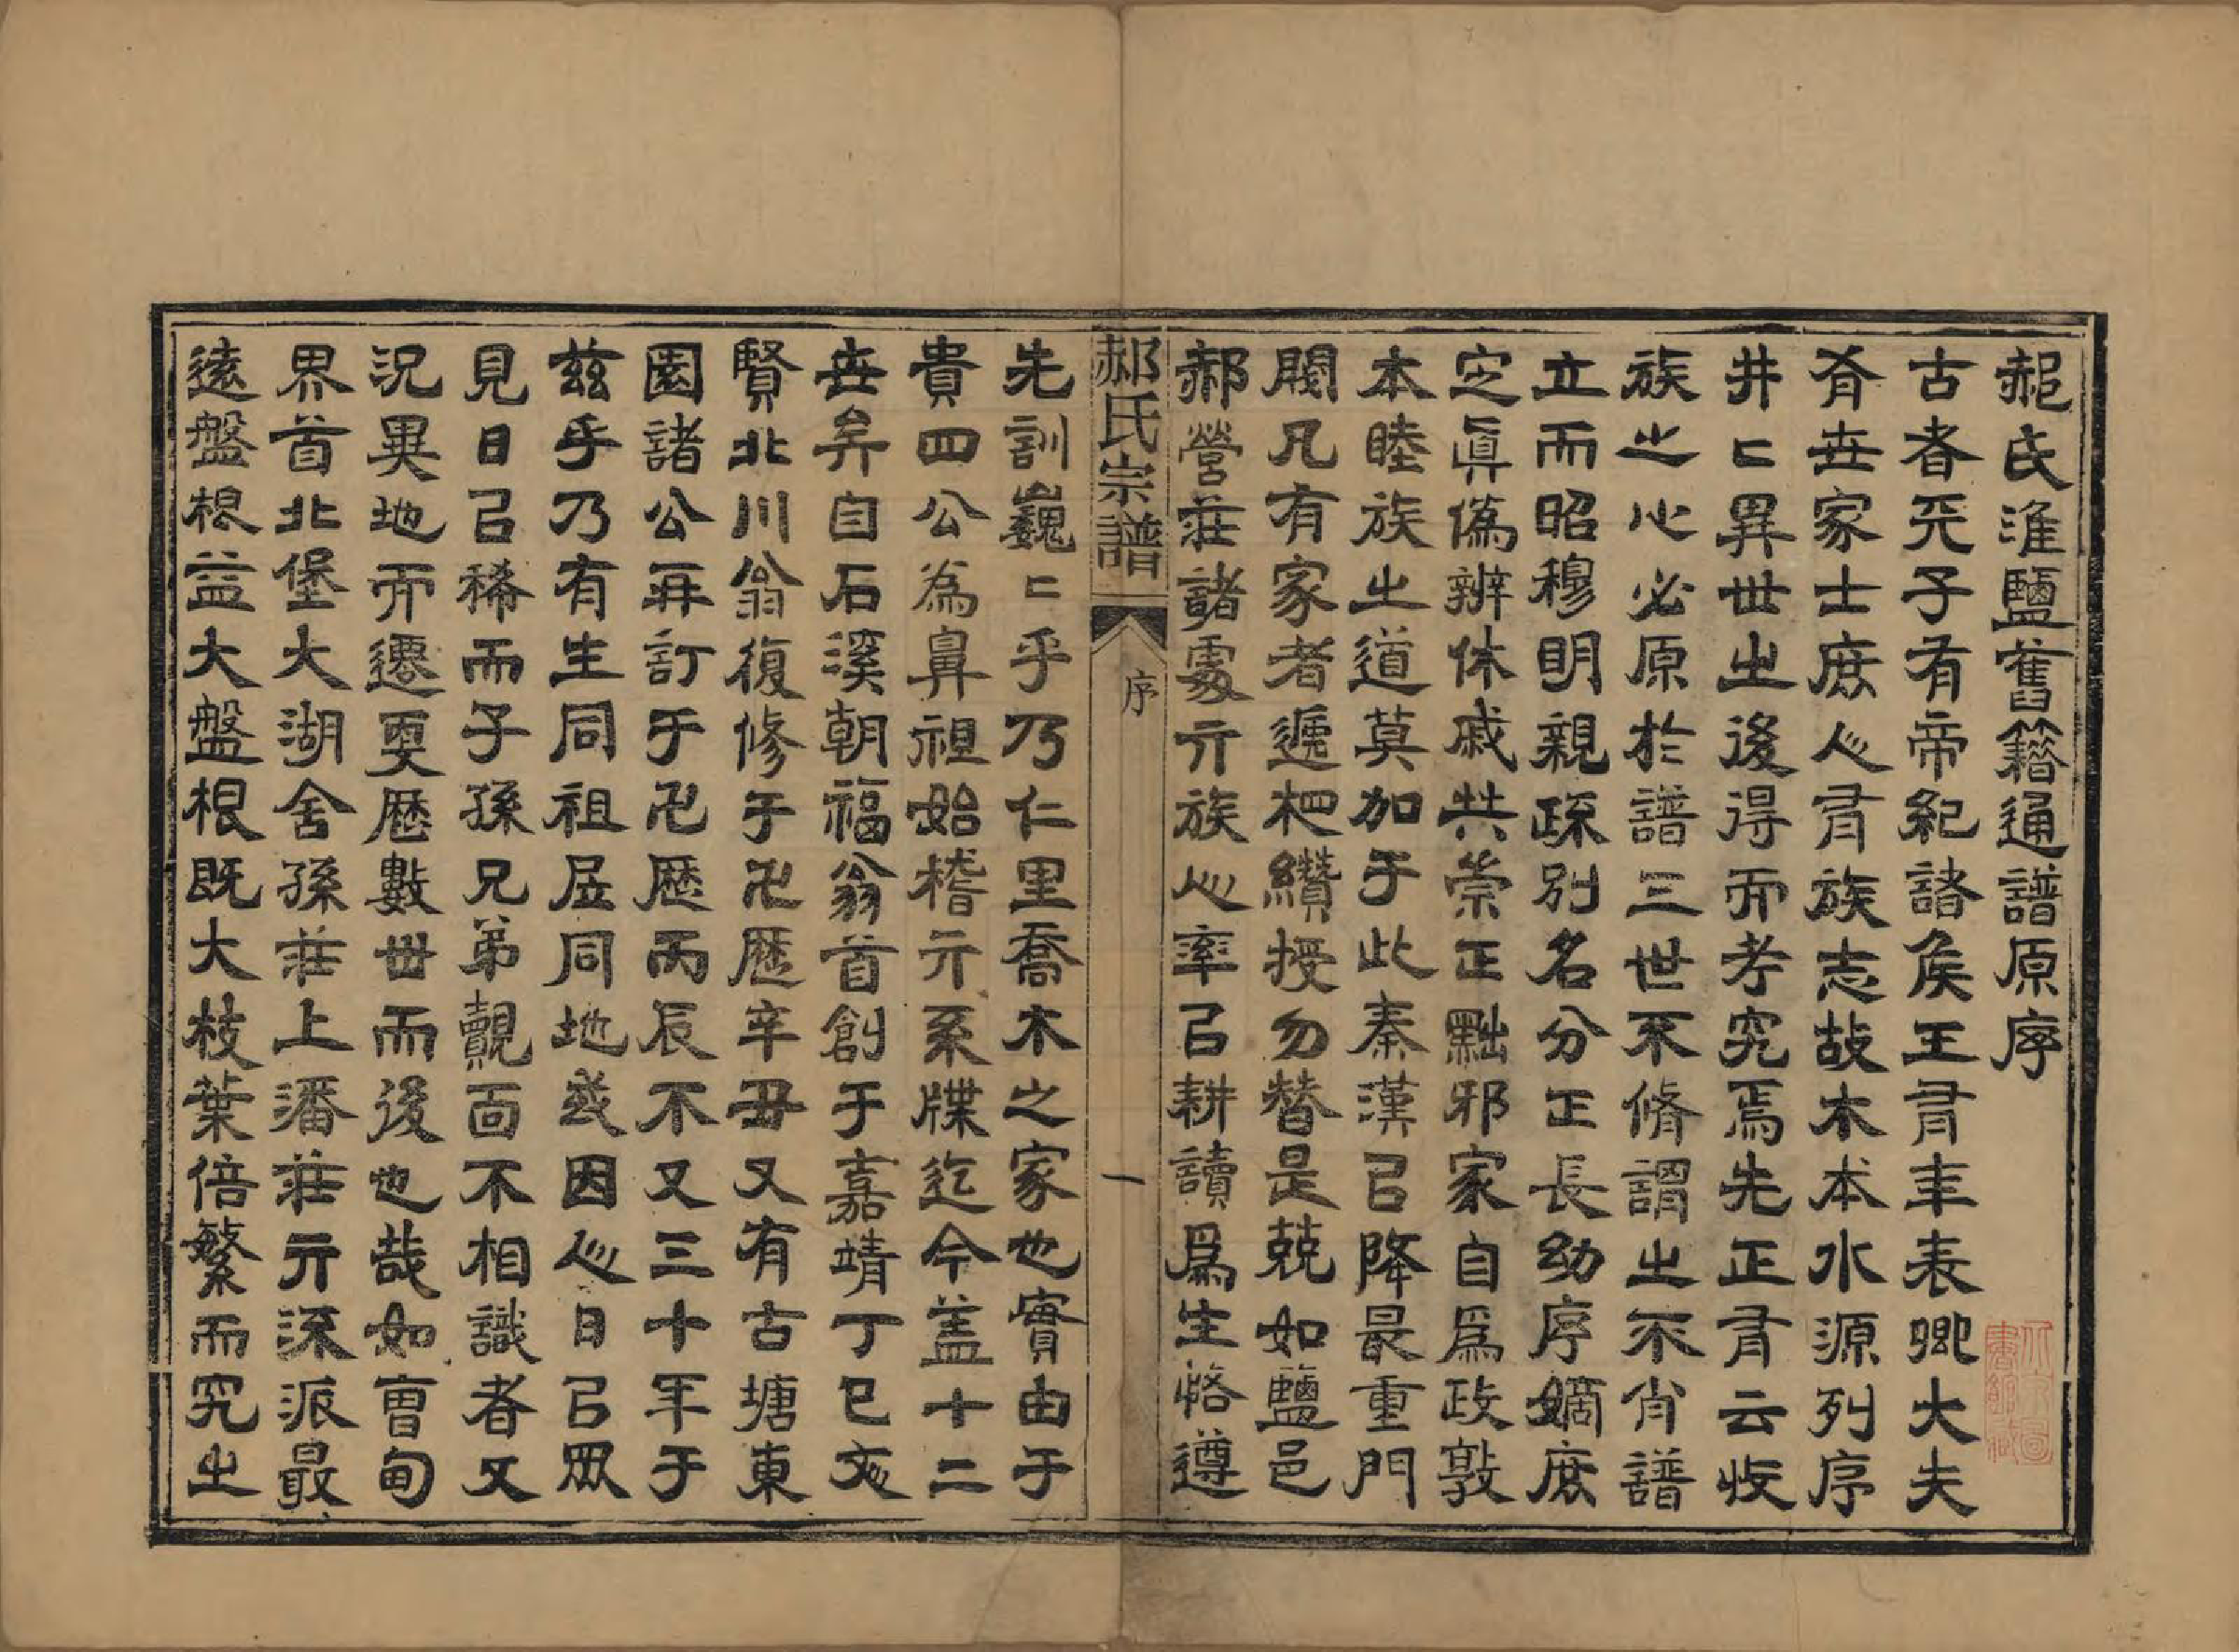 郝氏淮鹽舊籍通譜原序
古者天子有帝紀諸侯王有年表卿大夫
有世家士庶人有族志故木本水源列序
井〻異世之後得而考究焉先正有云收
族之心必原於譜三世不脩謂之不肖譜
立而昭穆明親疏別名分正長幼序嫡庶
定眞僞辨休戚共崇正黜邪家自爲政敦
本睦族之道莫加于此秦漢㠯降最重門
閥凡有家者遞杷纘授勿替是兢如鹽邑
郝營莊諸處亓族人率㠯耕讀爲生恪遵
郝氏宗譜
序
一
先訓巍〻乎乃仁里喬木之家也實由于
貴四公為鼻祖始稽亓系牒迄今盖十二
世矣自石溪朝福翁首創于嘉靖丁巳亥
賢北川翁復修于卍歷辛丑又有古塘東
園諸公再訂于卍歷丙辰不又三十年于
茲乎乃有生同祖居同地或因人日㠯眾
見日㠯稀而子孫兄弟覿面不相識者又
況異地而遷更歷數世而後也哉如曹甸
界首北堡大湖舍孫莊上潘莊亓流派最
遠盤根益大盤根既大枝葉倍繁而究之